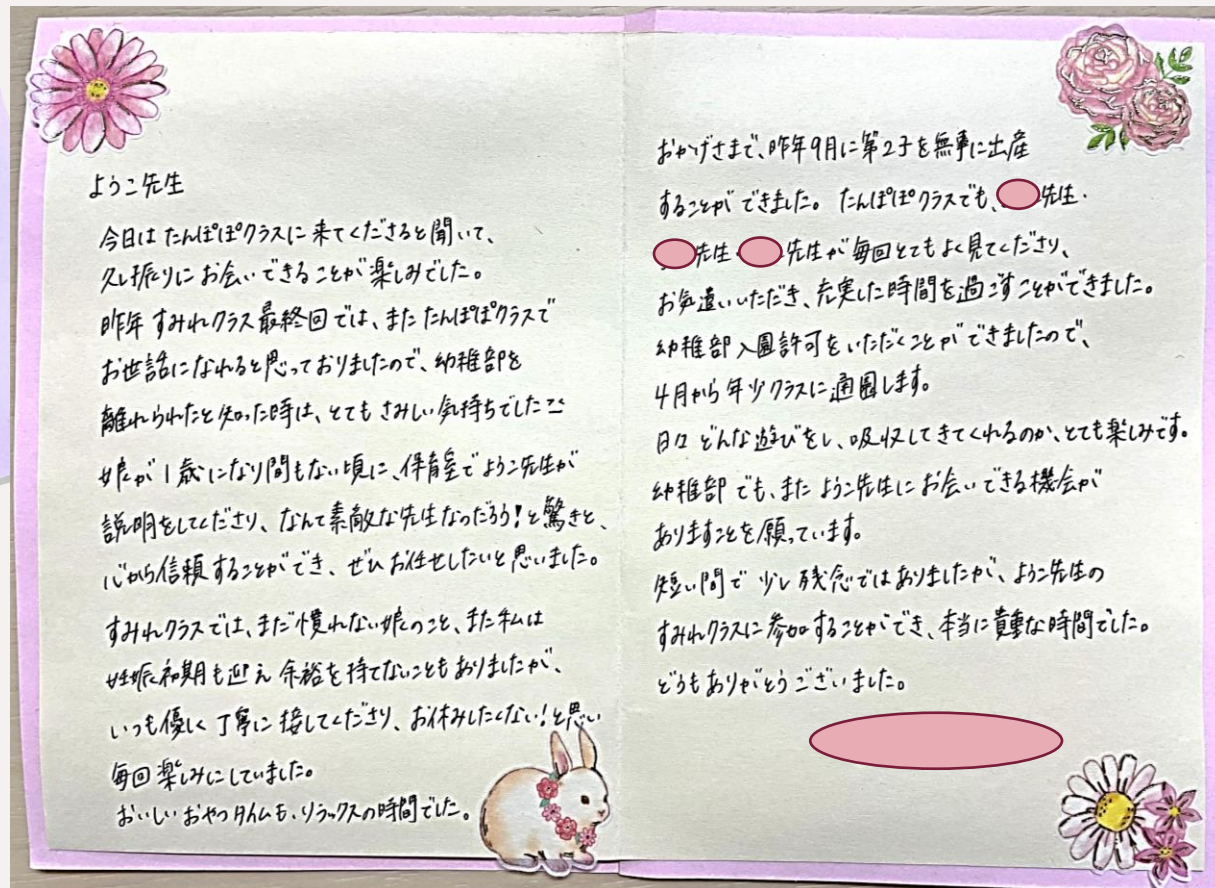 ようこ先生
今日は たんぽぽクラスに 来てくださると聞いて、
久し振りに お会いできることが 楽しみでした。
昨年 すみれクラス 最終回では、また たんぽぽクラスで
お世話になれると思っておりましたので、幼稚部を
離れられたと知った時は、とても さみしい気持ちでした
娘が 1歳になり間もない頃に、保育室で ようこ先生が
説明をしてくださり、なんて素敵な先生なっだろう!と驚きと、
心から信頼することができ、ぜひ お任せしたいと思いました。
すみれクラスでは、まだ慣れない娘のこと、また私は
妊娠初期も迎え 余裕を持てないこともありましたが、
いつも優しく丁寧に 接してくださり、お休みしたくない!と思い
毎回 楽しみにしていました。
おいしい おやつタイムも、リラックスの時間でした。
おかげさまで、昨年9月に第2子を無事に出産
することが できました。たんぽぽクラスでも、先生・
先生・先生が毎回とてもよく見てくださり、
お気遣いいただき、充実した時間を過ごすことができました。
幼稚部入園許可をいただくことができましたので、
4月から年少クラスに通園します。
日々 どんな遊びをし、吸収してきてくれるのか、とても楽しみです。
幼稚部でも、また ようこ先生に お会いできる機会が
ありますことを願っています。
短い間で 少し残念ではありましたが、ようこ先生の
すみれクラスに参加することができ、本当に貴重な時間でした。
どうもありがとうございました。